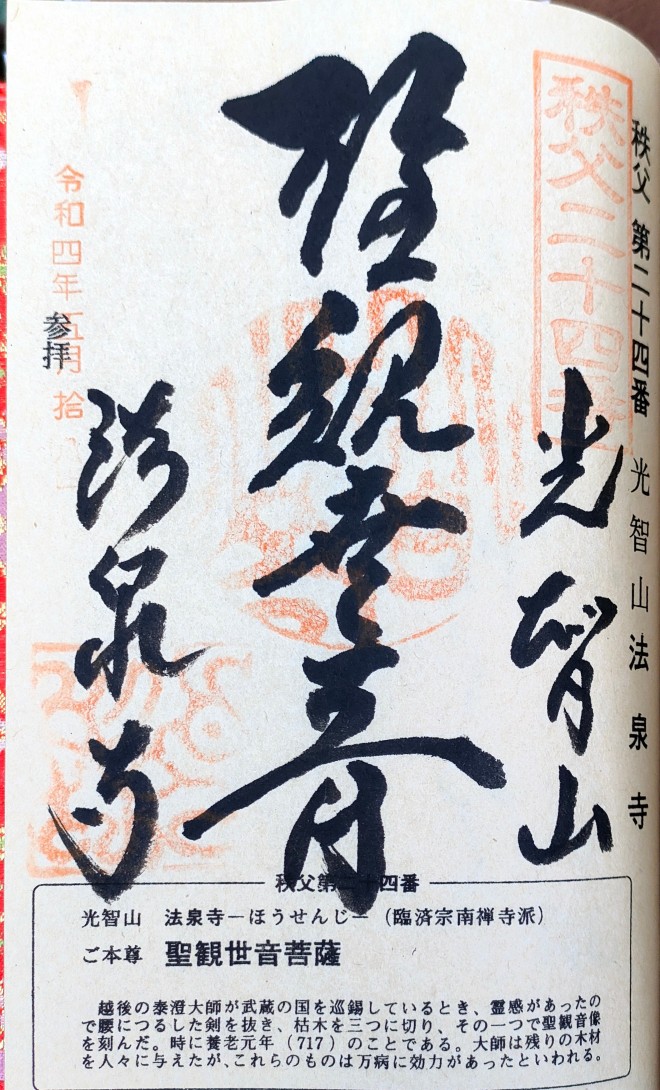 秩父 第二十四番 光智山法泉寺
秩父二十四番
光智山
聖観世音
法泉寺
令和四年五月拾八
参拝
秩父第二十四番
光智山 法泉寺－ほうせんじ－（臨済宗南禅寺派）
ご本尊 聖観世音菩薩
越後の泰澄大師が武蔵の国を巡錫しているとき、霊感があったの
で腰につるした剣を抜き、枯木を三つに切り、その一つで聖観音像
を刻んだ。時に養老元年（717）のことである。大師は残りの木材
を人々に与えたが、これらのものは万病に効力があったといわれる。